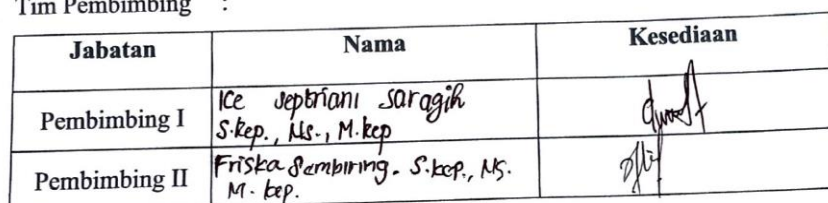 Tim Pembimbing :
Jabatan Nama Kesediaan
Pembimbing I Ice Septriani Saragih
S.kep., Ns., M.kep
Pembimbing II Friska Sembiring. S.kep., Ns.
M. kep.